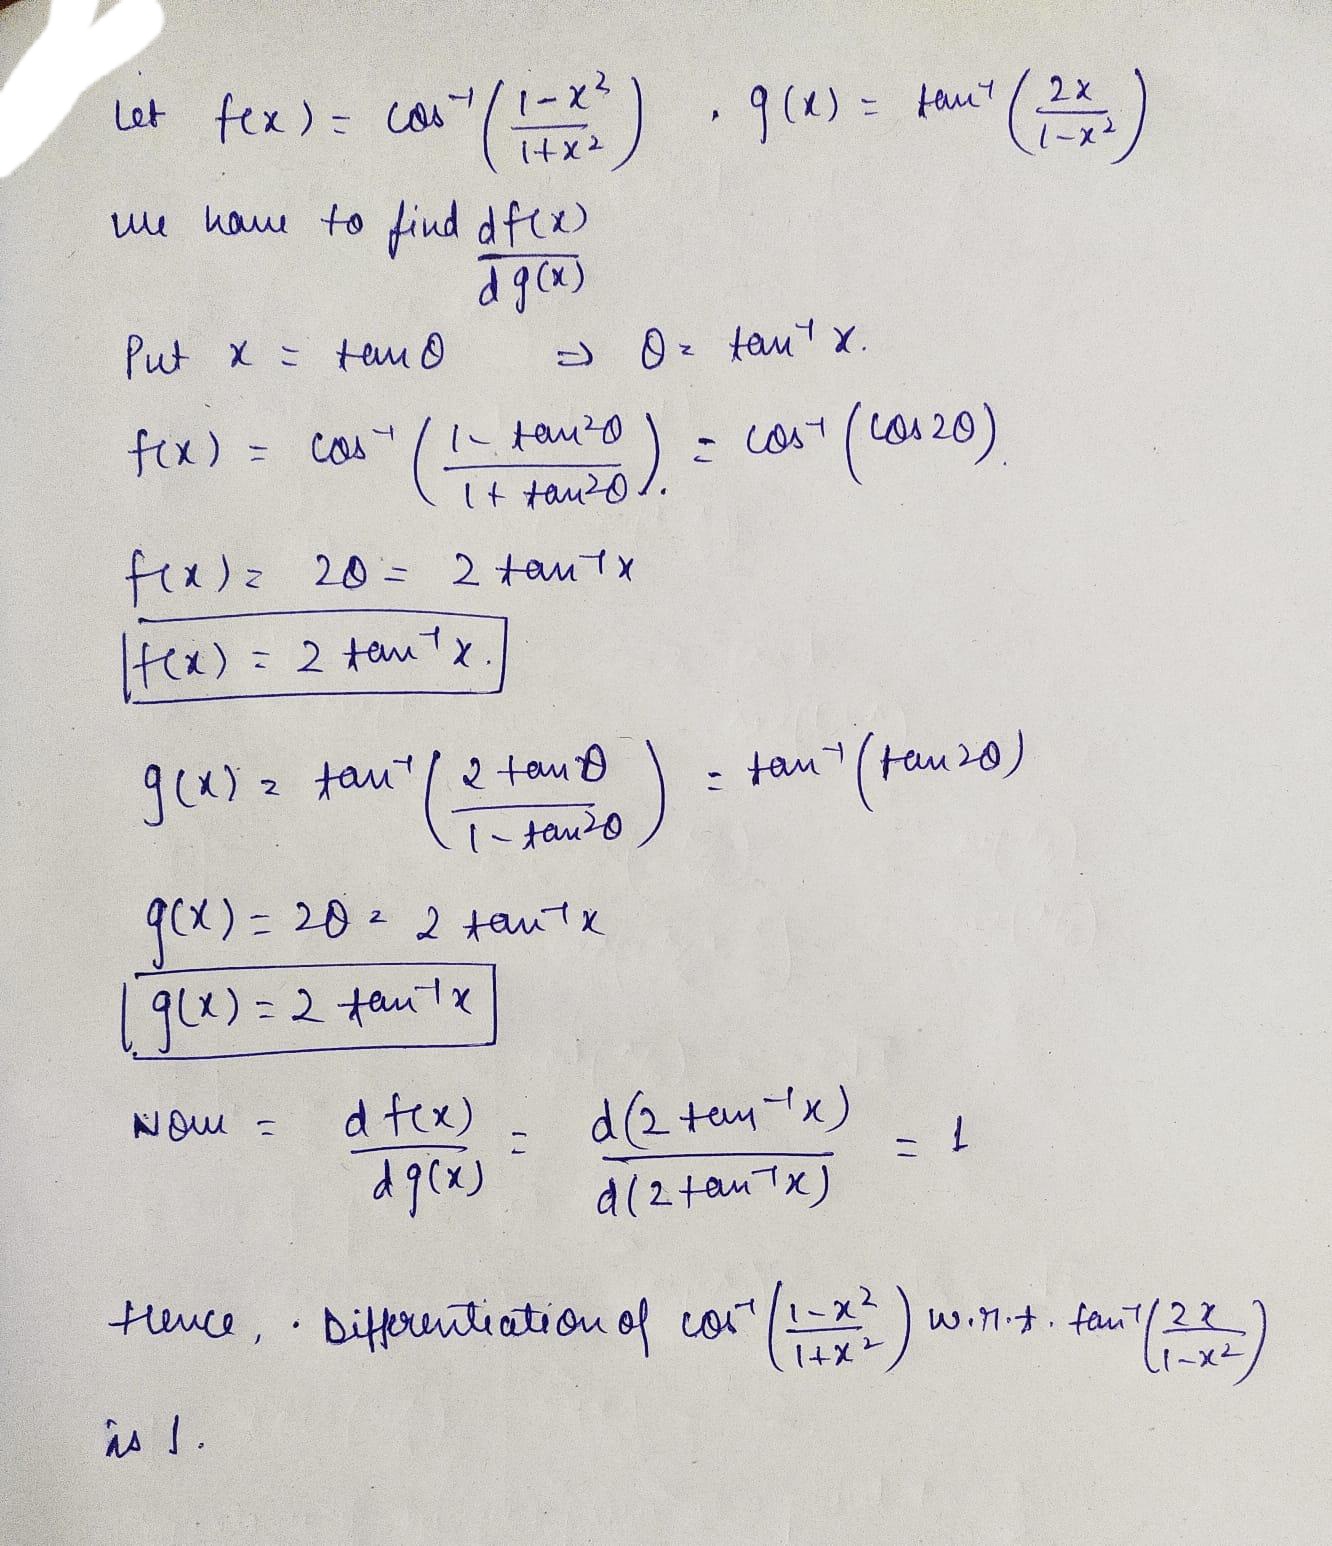 Let f(x) = cos⁻¹(1-x²/1+x²) , g(x) = tan⁻¹(2x/1-x²)
we have to find df(x)/dg(x)
Put x = tanθ ⇒ θ = tan⁻¹ x.
f(x) = cos⁻¹(1-tan²θ/1+tan²θ). = cos⁻¹(cos2θ).
f(x) = 2θ = 2 tan⁻¹x
f(x) = 2 tan⁻¹x.
g(x) = tan⁻¹(2 tanθ/1-tan²θ) = tan⁻¹(tan2θ)
g(x) = 2θ = 2 tan⁻¹x
g(x) = 2 tan⁻¹x
Now = df(x)/dg(x) = d(2 tan⁻¹x)/d(2 tan⁻¹x) = 1
Hence, . Differentiation of cos⁻¹(1-x²/1+x²) w.r.t. tan⁻¹(2x/1-x²)
is 1.